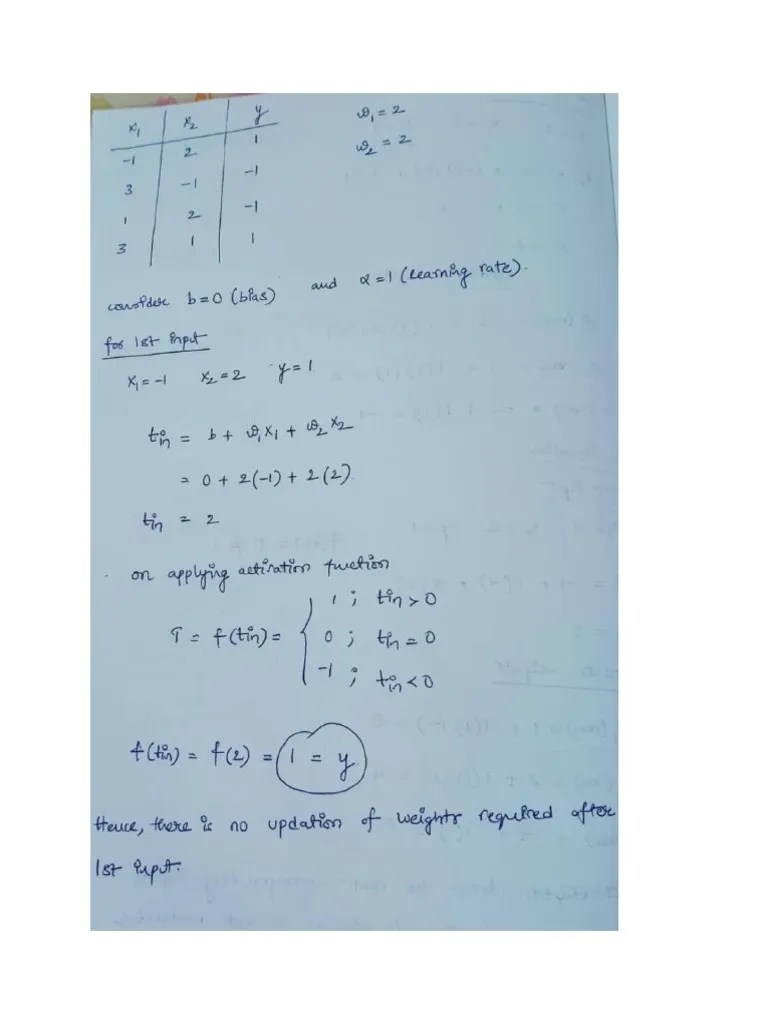 x₁ x₂ y w₁ = 2
-1 2 1 w₂ = 2
3 -1 -1
1 2 -1
3 1 1
consider b=0 (bias) and α=1 (learning rate).
for 1st input
x₁=-1 x₂=2 y=1
tin = b + w₁x₁ + w₂x₂
= 0 + 2(-1) + 2(2)
tin = 2
on applying activation function
T = f(tin) = { 1 ; tin > 0
0 ; tin = 0
-1 ; tin < 0
f(tin) = f(2) = 1 = y
Hence, there is no updation of weights required after
1st input.